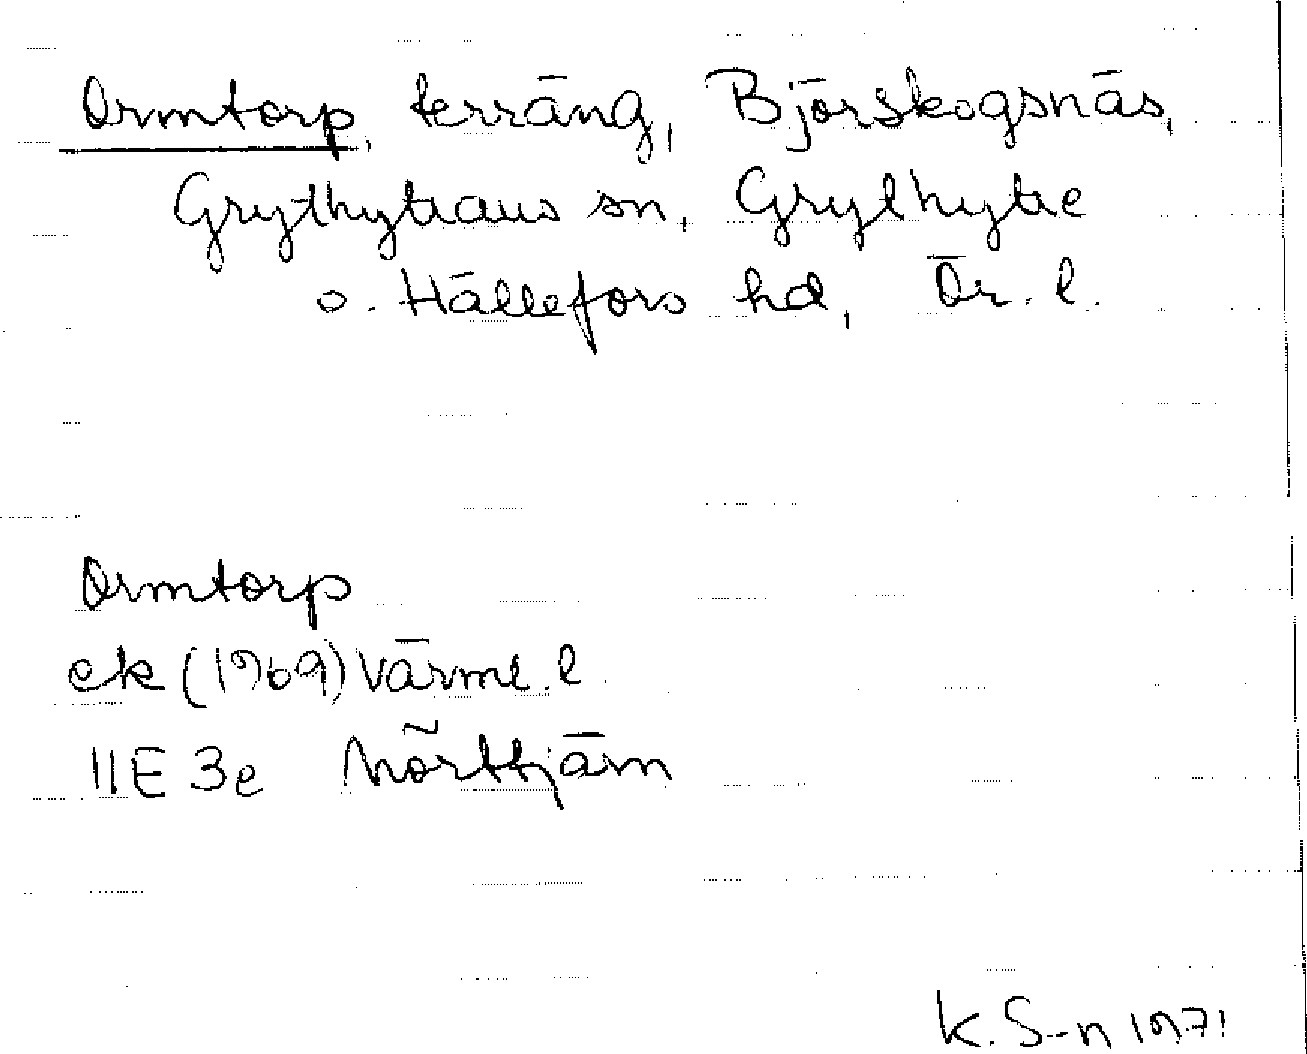 Ormtorp, terräng, Björskogsnäs,
Grythyttans sn, Grythytte
o. Hällefors hd, Ör. l.
Ormtorp
ek (1969) Värml. l
11E 3e Mörttjärn
K. S-n 1971